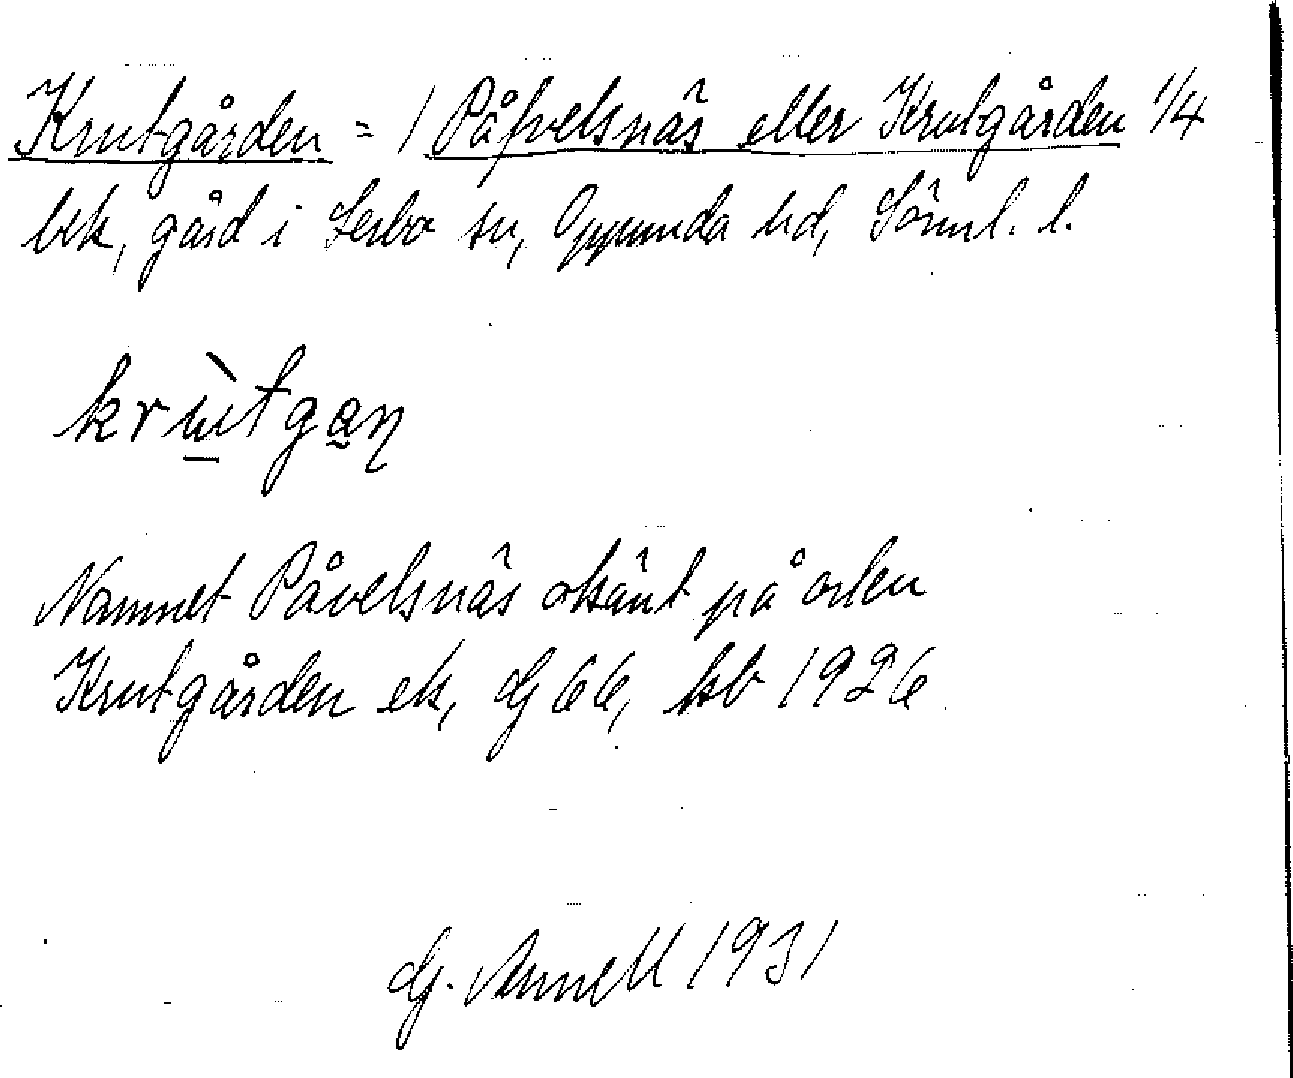 Krutgården = 1 Påfvelsnäs eller Krutgården 1/4
bek, gård i Lerbo sn, Oppunda hd, Söml. l.
krùtgan̥
Namnet Påvelsnäs okänt på orten
Krutgården ek, dj 66, kb 1926
G. Annell 1931